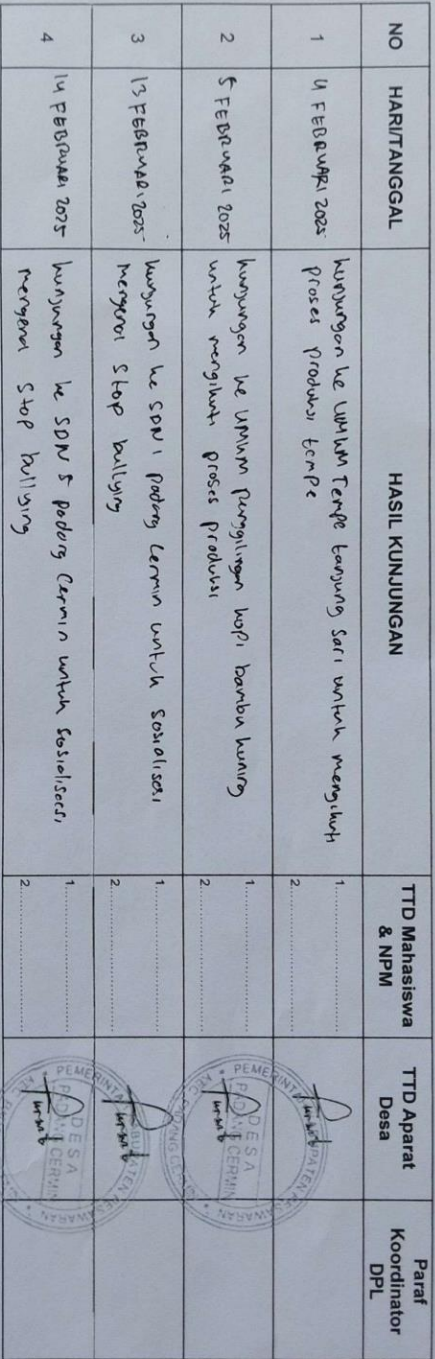 NO HARI/TANGGAL HASIL KUNJUNGAN TTD Mahasiswa & NPM TTD Aparat Desa Paraf Koordinator DPL
1 4 FEBRUARI 2025 kunjungan ke UMKM Tempe tanjung sari untuk mengikuti
proses produksi tempe
1. ....................
2. ....................
2 5 FEBRUARI 2025 kunjungan ke UMKM penggilingan kopi bambu kuning
untuk mengikuti proses produksi
1. ....................
2. ....................
3 13 FEBRUARI 2025 kunjungan ke SDN 1 padang cermin untuk sosialisasi
mengenai Stop bullying
1. ....................
2. ....................
4 14 FEBRUARI 2025 kunjungan ke SDN 5 padang Cermin untuk sosialisasi
mengenai Stop bullying
1. ....................
2. ....................
DESA
PADANG CERMIN
DESA
PADANG CERMIN